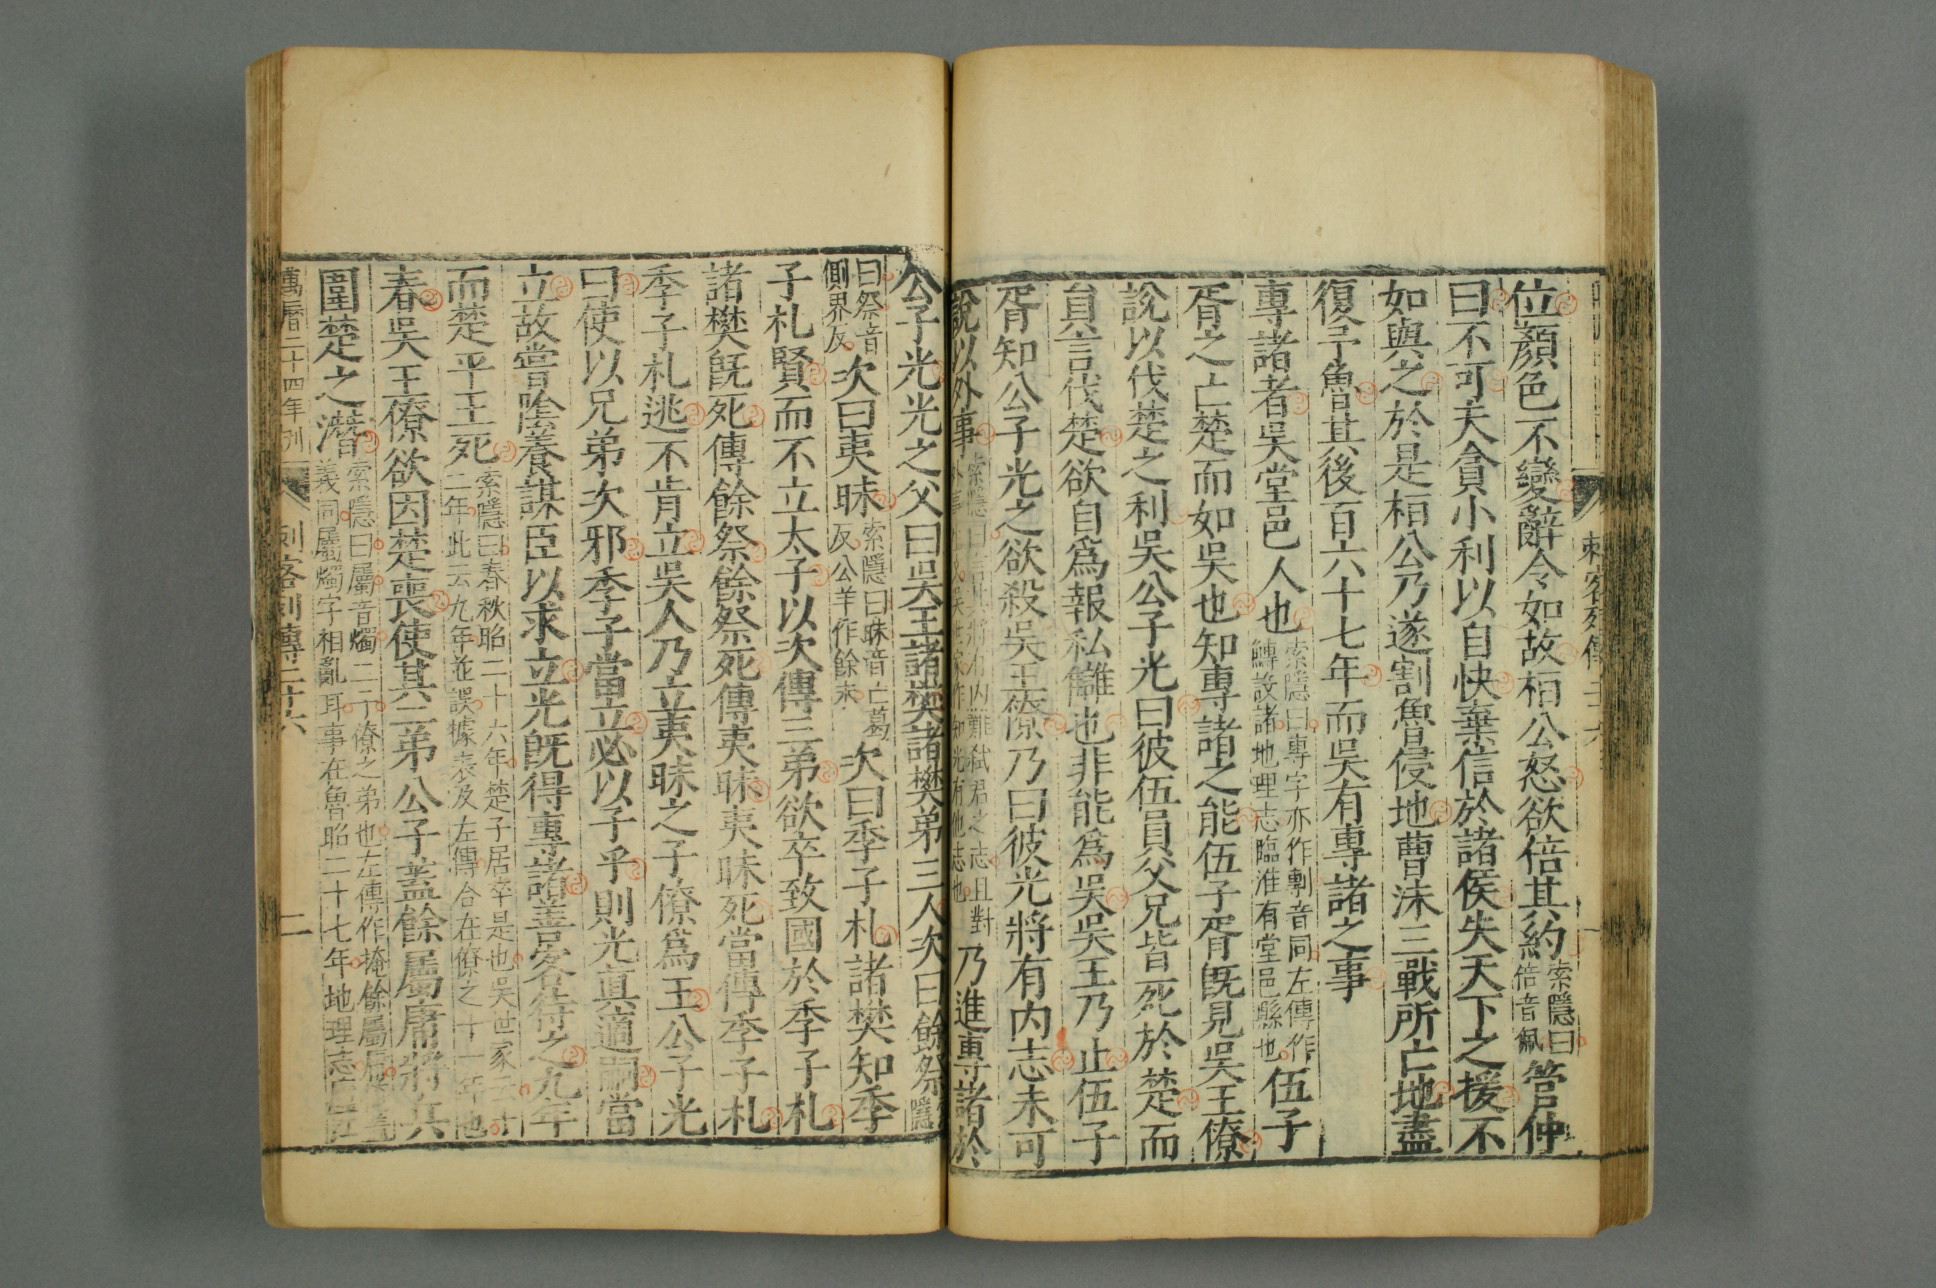 刺客列傳二十六
位顔色不變辭令如故桓公怒欲倍其約索隱曰倍音佩管仲
曰不可夫貪小利以自快棄信於諸侯失天下之援不
如與之於是桓公乃遂割魯侵地曹沬三戰所亡地盡
復予魯其後百六十七年而吳有專諸之事
專諸者吳堂邑人也索隱曰專字亦作剸音同左傳作鱄設諸地理志臨淮有堂邑縣也伍子
胥之亡楚而如吳也知專諸之能伍子胥旣見吳王僚
說以伐楚之利吳公子光曰彼伍員父兄皆死於楚而
員言伐楚欲自爲報私讎也非能爲吳吳王乃止伍子
胥知公子光之欲殺吳王僚乃曰彼光將有內志未可
說以外事索隱曰言其將有內難弑君之志且對外事光有他志也乃進專諸於
公子光光之父曰吳王諸樊諸樊弟三人次曰餘祭隱
曰祭音側界反次曰夷眛索隱曰眛音亡葛反公羊作餘末次曰季子札諸樊知季
子札賢而不立太子以次傳三弟欲卒致國於季子札
諸樊旣死傳餘祭餘祭死傳夷眛夷眛死當傳季子札
季子札逃不肯立吳人乃立夷眛之子僚爲王公子光
曰使以兄弟次邪季子當立必以子乎則光眞適嗣當
立故嘗陰養謀臣以求立光旣得專諸善客待之九年
而楚平王死索隱曰春秋昭二十六年楚子居卒是也吳世家云十二年此云九年並誤據表及左傳合在僚之十一年也
春吳王僚欲因楚喪使其二弟公子蓋餘屬庸將兵
圍楚之灊索隱曰屬音燭二子僚之弟也左傳作掩餘屬庸掩蓋義同屬燭字相亂耳事在魯昭二十七年地理志
萬曆二十四年刊
刺客列傳二十六
二